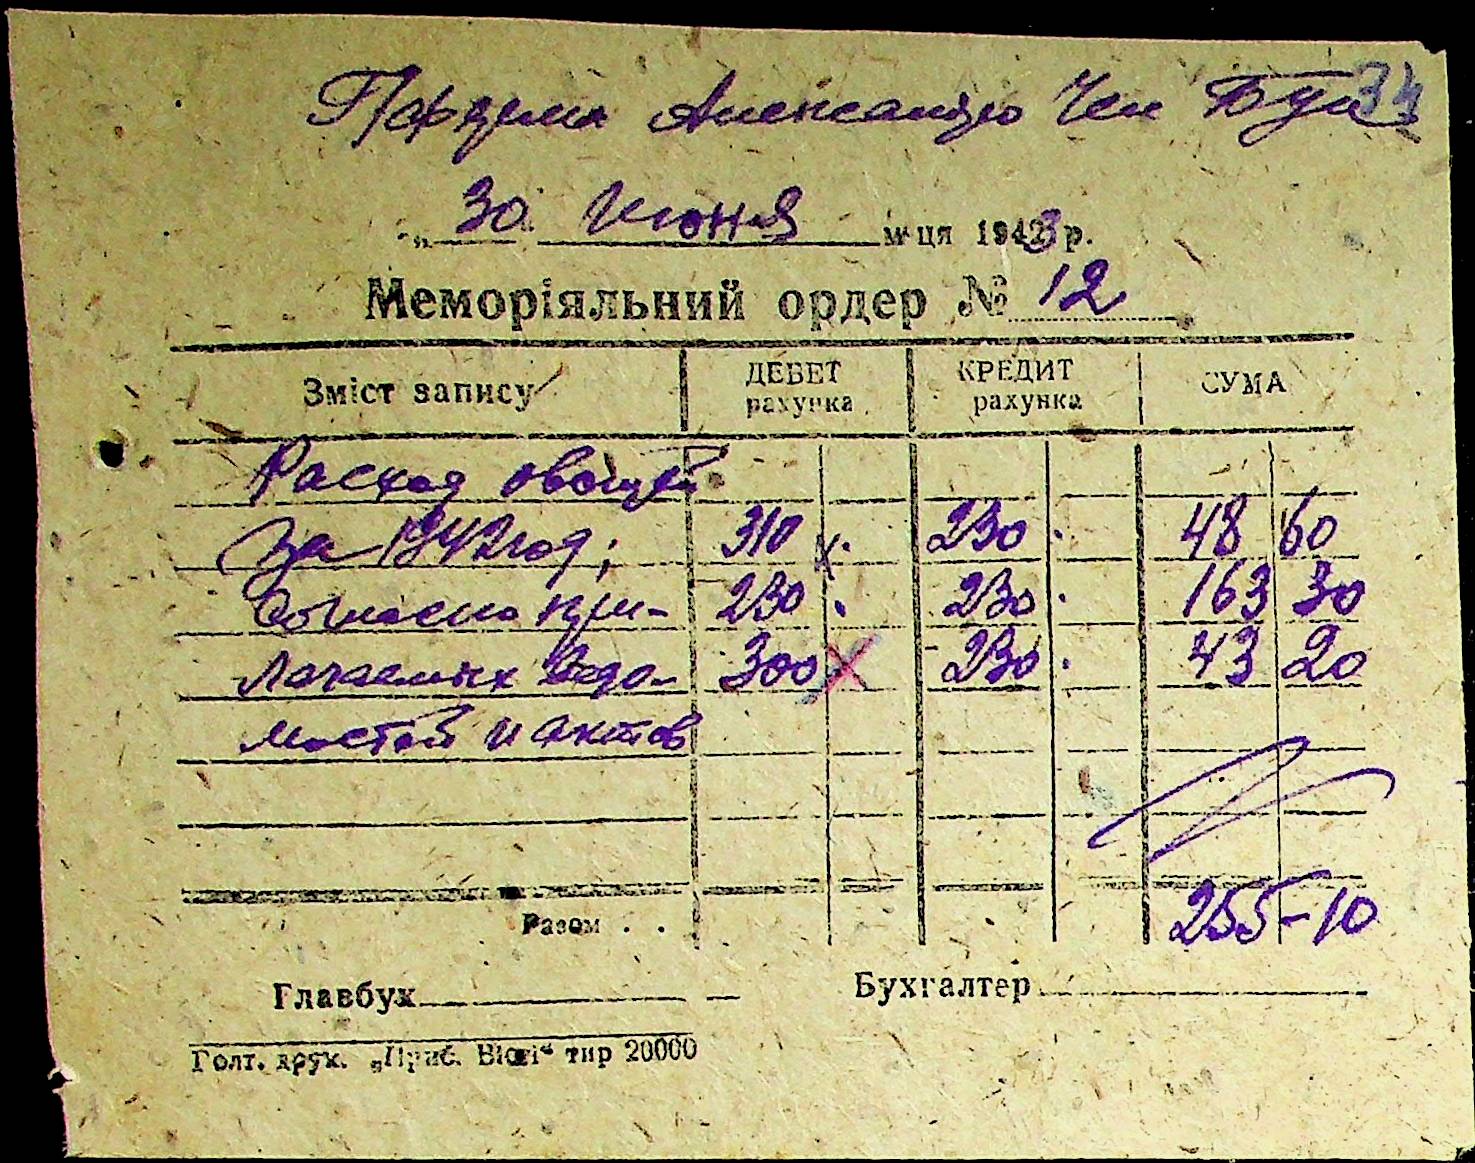 34
Ферма Александро Чен Буг
„ 30 " Июня м-ця 1943 р.
Меморіяльний ордер № 12
Зміст запису ДЕБЕТ рахунка КРЕДИТ рахунка СУМА
Расход овощей
За 1942 год; 310 230 48 60
Согласно при- 230 230 163 30
лагаемых Ведо- 300 230 43 20
мостей и актов
Разом . . 255-10
Главбух Бухгалтер
Голт. друк. „Приб. Вісті" тир 20000